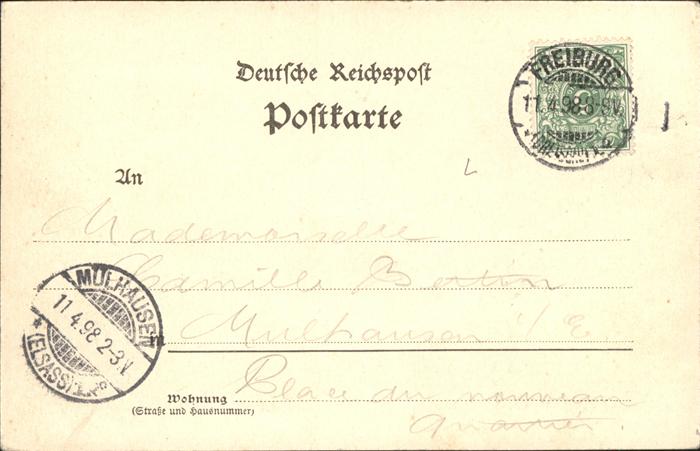 Deutsche Reichspost
Postkarte
FREIBURG
11.4.98.8-9V.
An
Mademoiselle
Camille Bertin
MÜLHAUSEN
11.4.98.2-3N.
(ELSASS)
in
Mulhausen i/E.
Wohnung
(Straße und Hausnummer)
Place du nouveau
quartier.